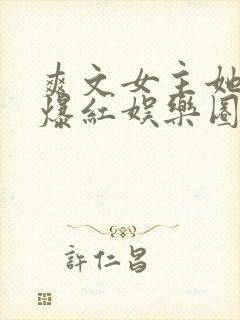 爽文女主她
爆紅娛樂圈
許仁昌